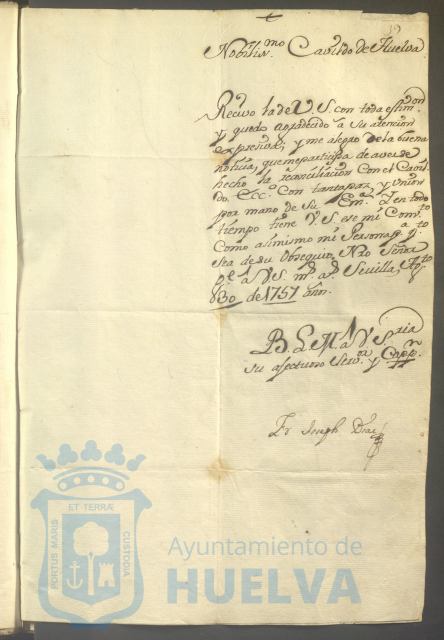 Nobilis.mo Cavildo de Huelva
Recivo la de V. S. con toda estim.on
y quedo agradecido a su atencion
expresiva; y me alegro de la buena
noticia, que me participa de averse
hecho la reconciliacion con el Cavil
do Ecc.o con tanta paz, y union
por mano de su Em.a I en todo
tiempo tiene V. S. ese mi Conv.to
como asimismo mi Persona p.a q.to
sea de su Obsequio, Nro Señor
g.e a V. S. m.s a.s Sevilla, Ag.to
30 de 1757 años.
B. L. M. a V. S.ria
su afectuoso Serv.or y Capp.n
Fr Joseph Diaz
PORTUS MARIS
ET TERRÆ
CUSTODIA
Ayuntamiento de
HUELVA